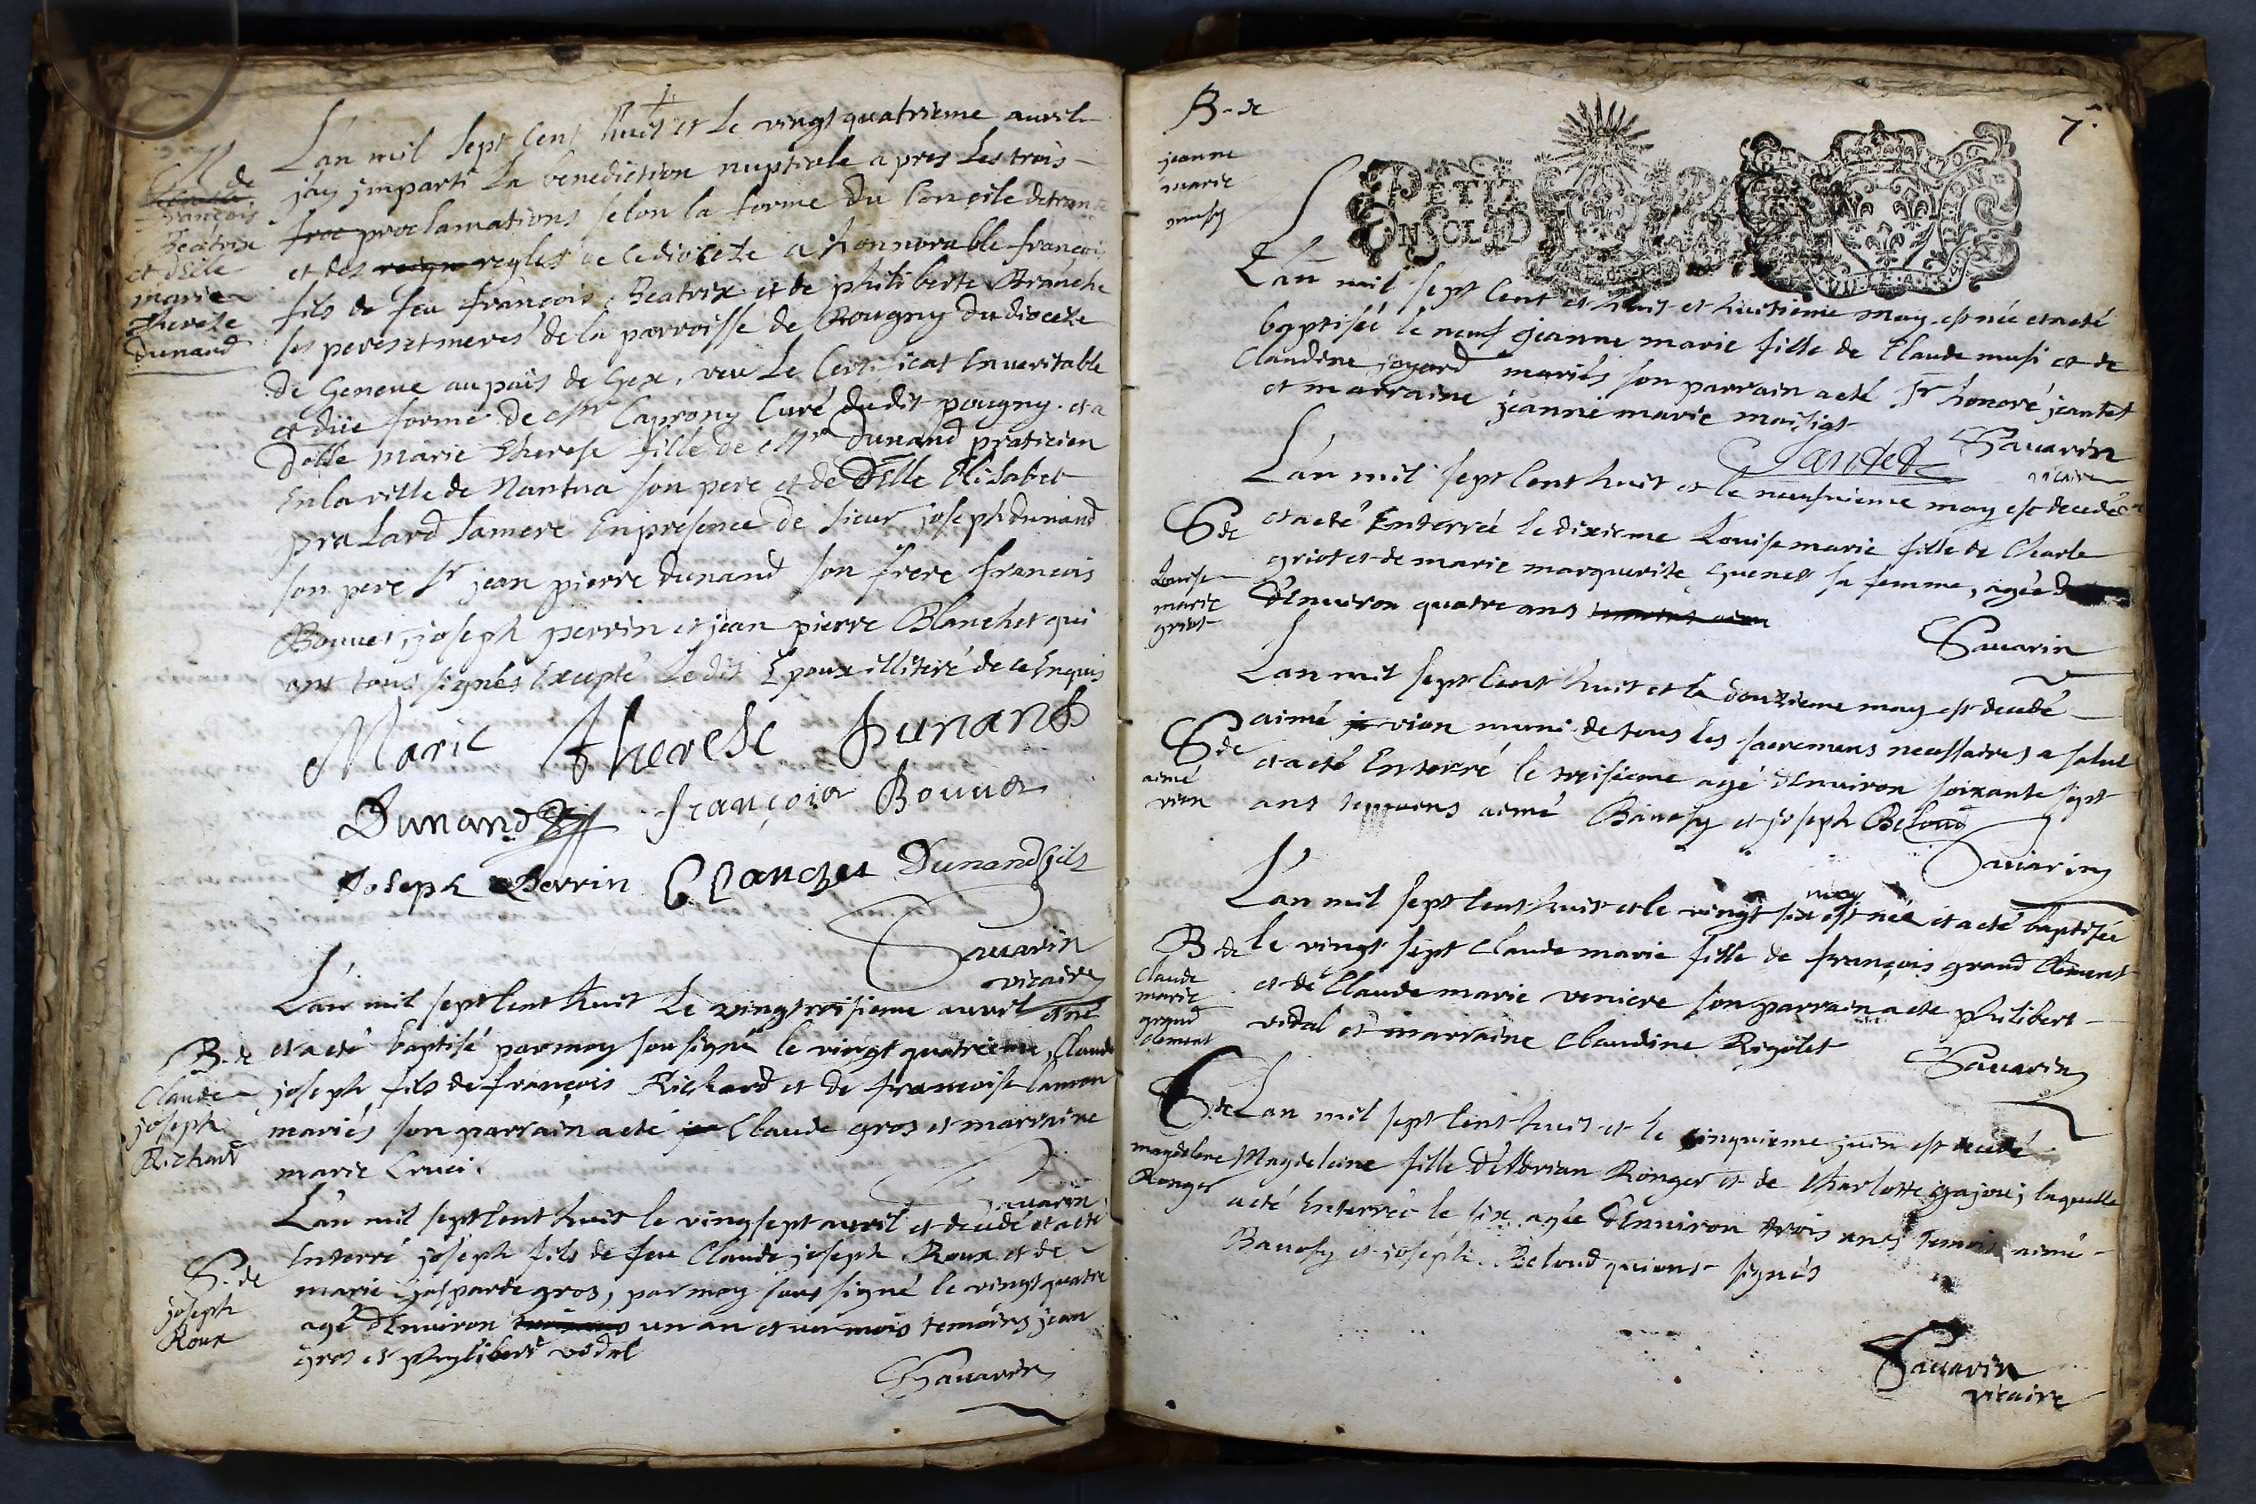 L'an mil sept cent huit et le vingt quatrieme avril
M. de
françois
Beatrix
et dlle
marie
therese
dunand
j'ay imparti la benediction nuptiale apres les trois
proclamations selon la forme du Concile de trante
et des regles de ce diocese a honnorable françois
fils de feu françois Beatrix et de philiberte Branche
ses peres et meres de la parroisse de Pougny du diocese
de Geneve au païs de Gex, veu le Certificat en veritable
et düe forme de Mr Caprony Curé dudit pougny. et a
dlle marie therese fille de Mr dunand praticien
en la ville de Nantua son pere et de dlle Elisabet
pralard sa mere En presence de sieur joseph dunand
son pere Sr jean pierre dunand son frere francois
Bouvet, joseph perrin et jean pierre Blanchet qui
ont tous signés Excepté le dit Epoux illiteré de ce Enquis
Marie therese Dunand
Dunand françois Bouvet
Joseph Perrin Blanchet Dunand fils
Savarin
vicaire
B. de
Claude
joseph
Richard
L'an mil sept cent huit le vingt troisieme avril est né
et a eté baptisé par moy sousigné le vingt quatrieme, Claude
joseph fils de françois Richard et de francoise
mariés son parrain a eté Claude gros et marraine
marie Cruci.
Savarin
S. de
joseph
Roux
L'an mil sept cent huit le vingt sept avril et decedé et a eté
Enterré joseph fils de feu Claude joseph Roux et de
marie gasparde gros, par moy sous signé le vingt quatre
agé d'Environ un an et un mois temoins jean
gros et phylibert vidal
Savarin
7.
PETIT
B. de
jeanne
marie
musy
L'an mil sept cent et huit et huitieme may est née et a eté
baptisée le neuf jeanne marie fille de Claude musi et de
Claudine joyard mariés son parrain a eté Sr honoré jantet
et marraine jeanne marie moisiat
Jantet Savarin
vicaire
S. de
Louise
marie
griot
L'an mil sept cent huit et le neufvieme may est decedée
et a eté Enterrée le dixieme Louise marie fille de Charle
griot et de marie marguerite Guenet sa femme, agée
d'Environ quatre ans
Savarin
S. de
aimé
vion
L'an mil sept cent huit et le douzieme may est decedé
aimé vion muni de tous les sacremens necessaires a salut
et a eté Enterré le treisieme agé d'Environ soixante sept
ans temoins aimé Bavosy et joseph Beloud
Savarin
B. de
Claude
marie
grand
clement
L'an mil sept cent huit et le vingt six may est née et a eté baptisée
le vingt sept Claude marie fille de françois grand Clement
et de Claude marie veniere son parrain a eté philibert
vidal et marraine Claudine Rigolet
Savarin
S. de
magdelene
Ronger
L'an mil sept cent huit et le cinquieme juin est decedé
Magdeleine fille d'Adrian Ronger et de Charlotte gajou; laquelle
a eté Enterrée le six agée d'Environ trois ans temoin aimé
Bavosy et joseph Beloud qui ont signés
Savarin
vicaire